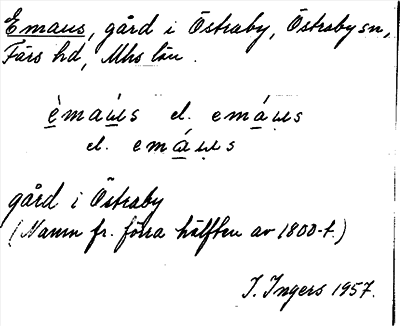 Emaus, gård i Östraby, Östraby sn,
Färs hd, Mhs län.
èmaùs el. emáus
el. emáus
gård i Östraby
(Namn fr. förra hälften av 1800-t.)
I. Ingers 1957.